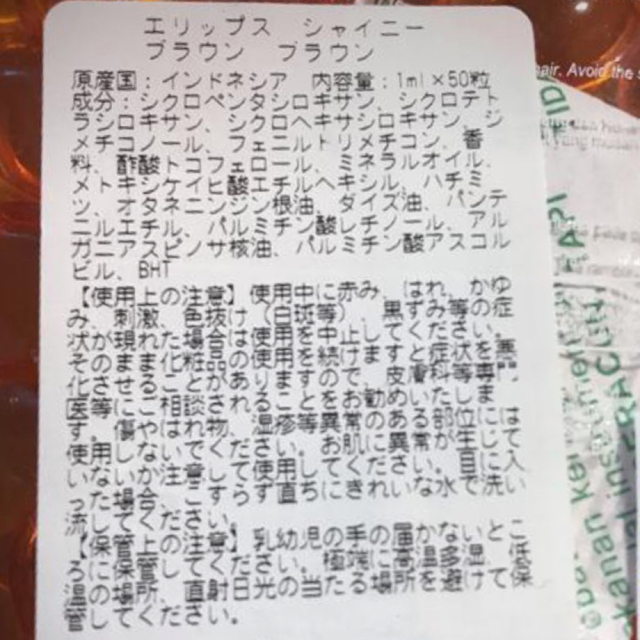 エリップス　シャイニー
ブラウン　ブラウン
原産国：インドネシア　内容量：1ml×50粒
成分：シクロペンタシロキサン、シクロテト
ラシロキサン、シクロヘキサシロキサン、ジ
メチコノール、フェニルトリメチコン、香
料、酢酸トコフェロール、ミネラルオイル、
メトキシケイヒ酸エチルヘキシル、ハチミ
ツ、オタネニンジン根油、ダイズ油、パンテ
ニルエチル、パルミチン酸レチノール、アル
ガニアスピノサ核油、パルミチン酸アスコル
ビル、BHT
【使用上の注意】使用中に赤み、はれ、かゆ
み、刺激、色抜け（白斑等）　黒ずみ等の症
状が現れた場合は使用を中止してください。
そのまま化粧品の使用を続けますと症状を悪
化させることがありますので、皮膚科等専門
医等にご相談されることをお勧めいたしま
す。傷やはれ物、湿疹等異常のある部位には
使用しないでください。お肌に異常が生じて
いないか注意して使用してください。目に入
った場合、こすらず直ちにきれいな水で洗い
流してください。
【保管上の注意】乳幼児の手の届かないとこ
ろに保管してください。極端に高温多湿、低
温の場所、直射日光の当たる場所を避けて保
管してください。
hair. Avoid the